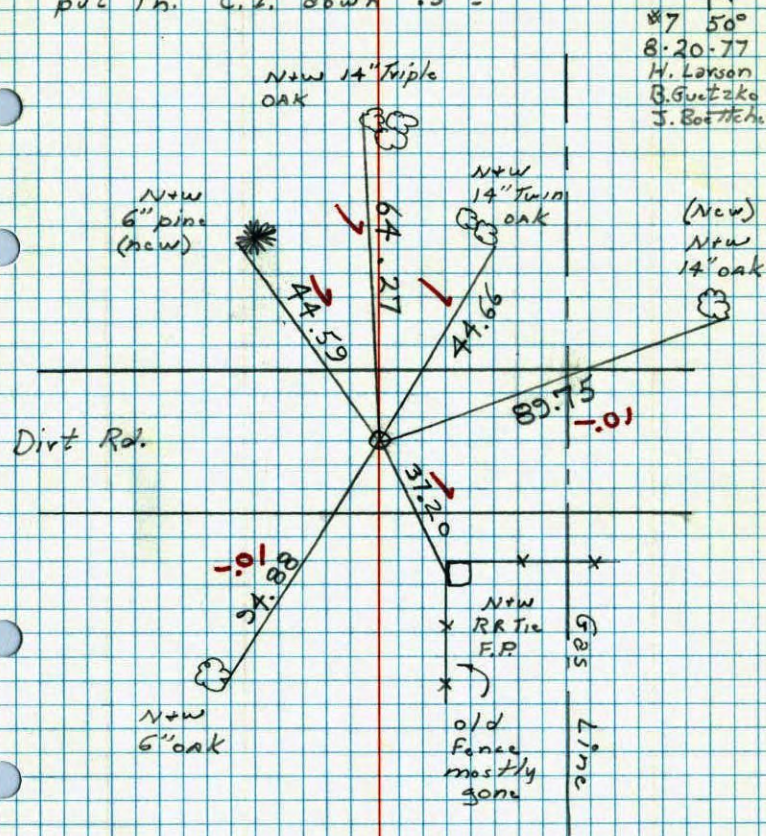 put in. C.I. down .3 ±
#7 50°
8·20·77
H. Larson
B. Guetzko
J. Boettche
N+W 14" Triple
OAK
N+W
14" Twin
OAK
N+W
6" pine
(new)
(New)
N+W
14" OAK
64.27
44.59
44.66
89.75
-.01
Dirt Rd.
37.20
-.01
94.88
N+W
RR Tie
F.P.
Gas Line
N+W
6" OAK
old
Fence
mostly
gone